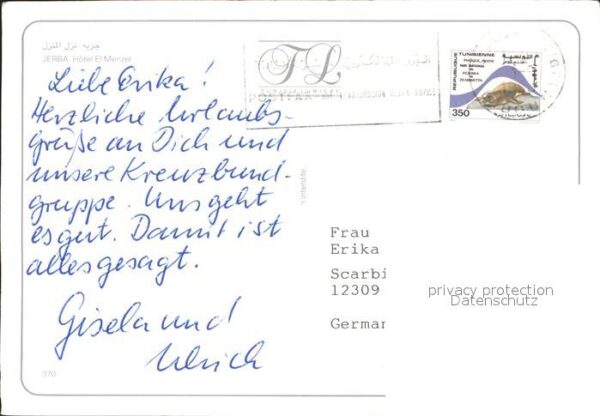 جربة. نزل المنزل
JERBA Hôtel El Menzel
Liebe Erika!
Herzliche Urlaubs-
grüße an Dich und
unsere Kreuzbund-
gruppe. Uns geht
es gut. Damit ist
alles gesagt.
Gisela und
Ulrich
970
TL
REPUBLIQUE TUNISIENNE
350
Frau
Erika
Scarbi
12309
German
privacy protection
Datenschutz